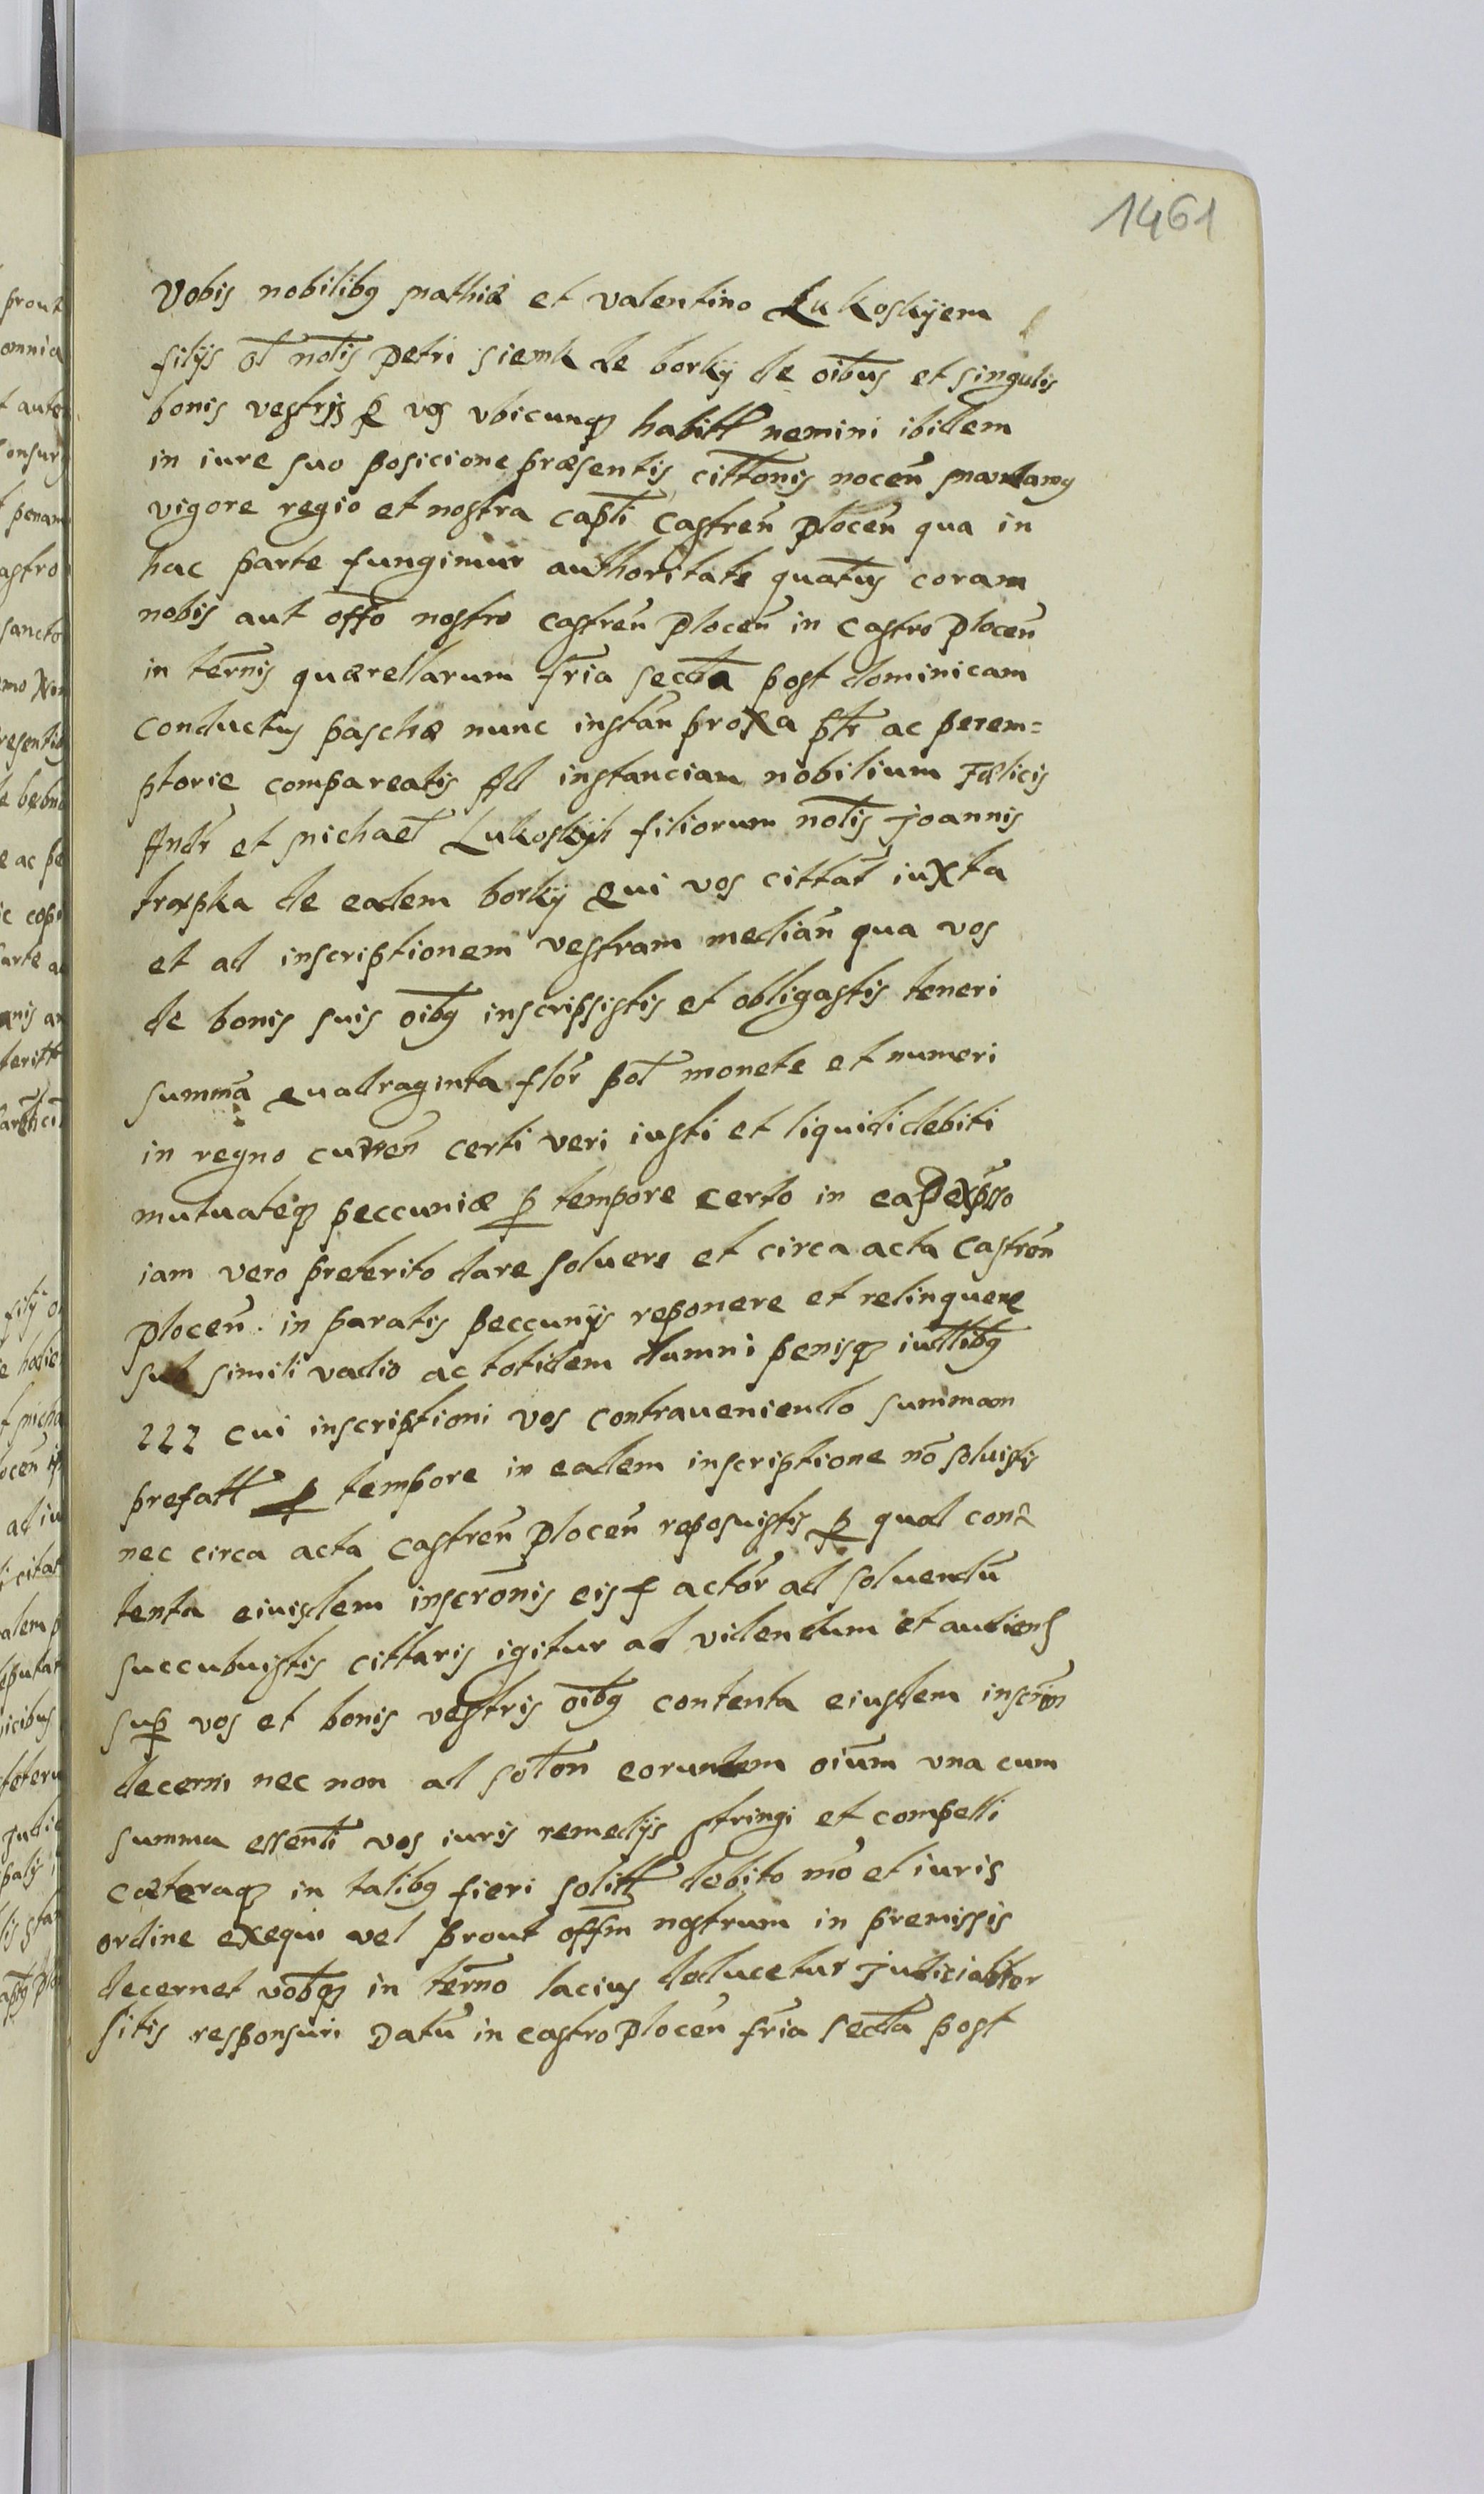 1461
Vobis nobilibꝯ Mathiæ et Valentino Lukoskyem
filijs ol notis Petri Siemk de borky de oibus et singulis
bonis vestris p vos vbicunqꝫ habitt nemini ibidem
in iure suo posicione præsentis cittonis nocen̄ mandamꝯ
vigore regio et nostra capti Castren̄ Plocen̄ qua in
hac parte fungimur authoritate quatus coram
nobis aut offo nostro castren̄ Plocen̄ in castro Plocen̄
in ternis quærellarum fria secta post dominicam
conductus paschæ nunc instan̄ proxa ptr ac perem=
ptorie compareatis Ad instanciam nobilium Fælicis
Andr et Michael Lukoskych filiorum notis Joannis
de eadem borky qui vos cittat iuxta
et ad inscriptionem vestram median̄ qua vos
de bonis suis oibꝯ inscripsistis et obligastis teneri
summā quadraginta flor pol monete et numeri
in regno curren̄ certi veri iusti et liquidi debiti
mutuateqꝫ peccuniæ ꝑ tempore certo in ead expsso
iam vero preterito dare soluere et circa acta Castren̄
Plocen̄. in paratis peccunijs reponere et relinquere
sub simili vadio ac totidem damni penisqꝫ iudlibꝯ
222 cui inscriptioni vos contraueniendo summam
prefatt ꝓ tempore in eadem inscriptione nō soluistis
nec circa acta castren̄ Plocen̄ reposuistis ꝓ quod con=
tenta eiuisdem inscronis eis actor ad soluendū
succubuistis cittaris igitur ad videndum et audiend
suꝑ vos et bonis vestris oibꝯ contenta eiusdem inscron
decerni nec non ad soton eorundem oium vna cum
summa essenti vos iuris remedijs stringi et compelli
cæteraqꝫ in talibꝯ fieri solitt debito mō et iuris
ordine exequi vel prout offm nostrum in premissis
decernet vobqꝫ in terno lacius deducetur Judicialtor
sitis responsuri Datū in castro Plocen̄ fria secta post